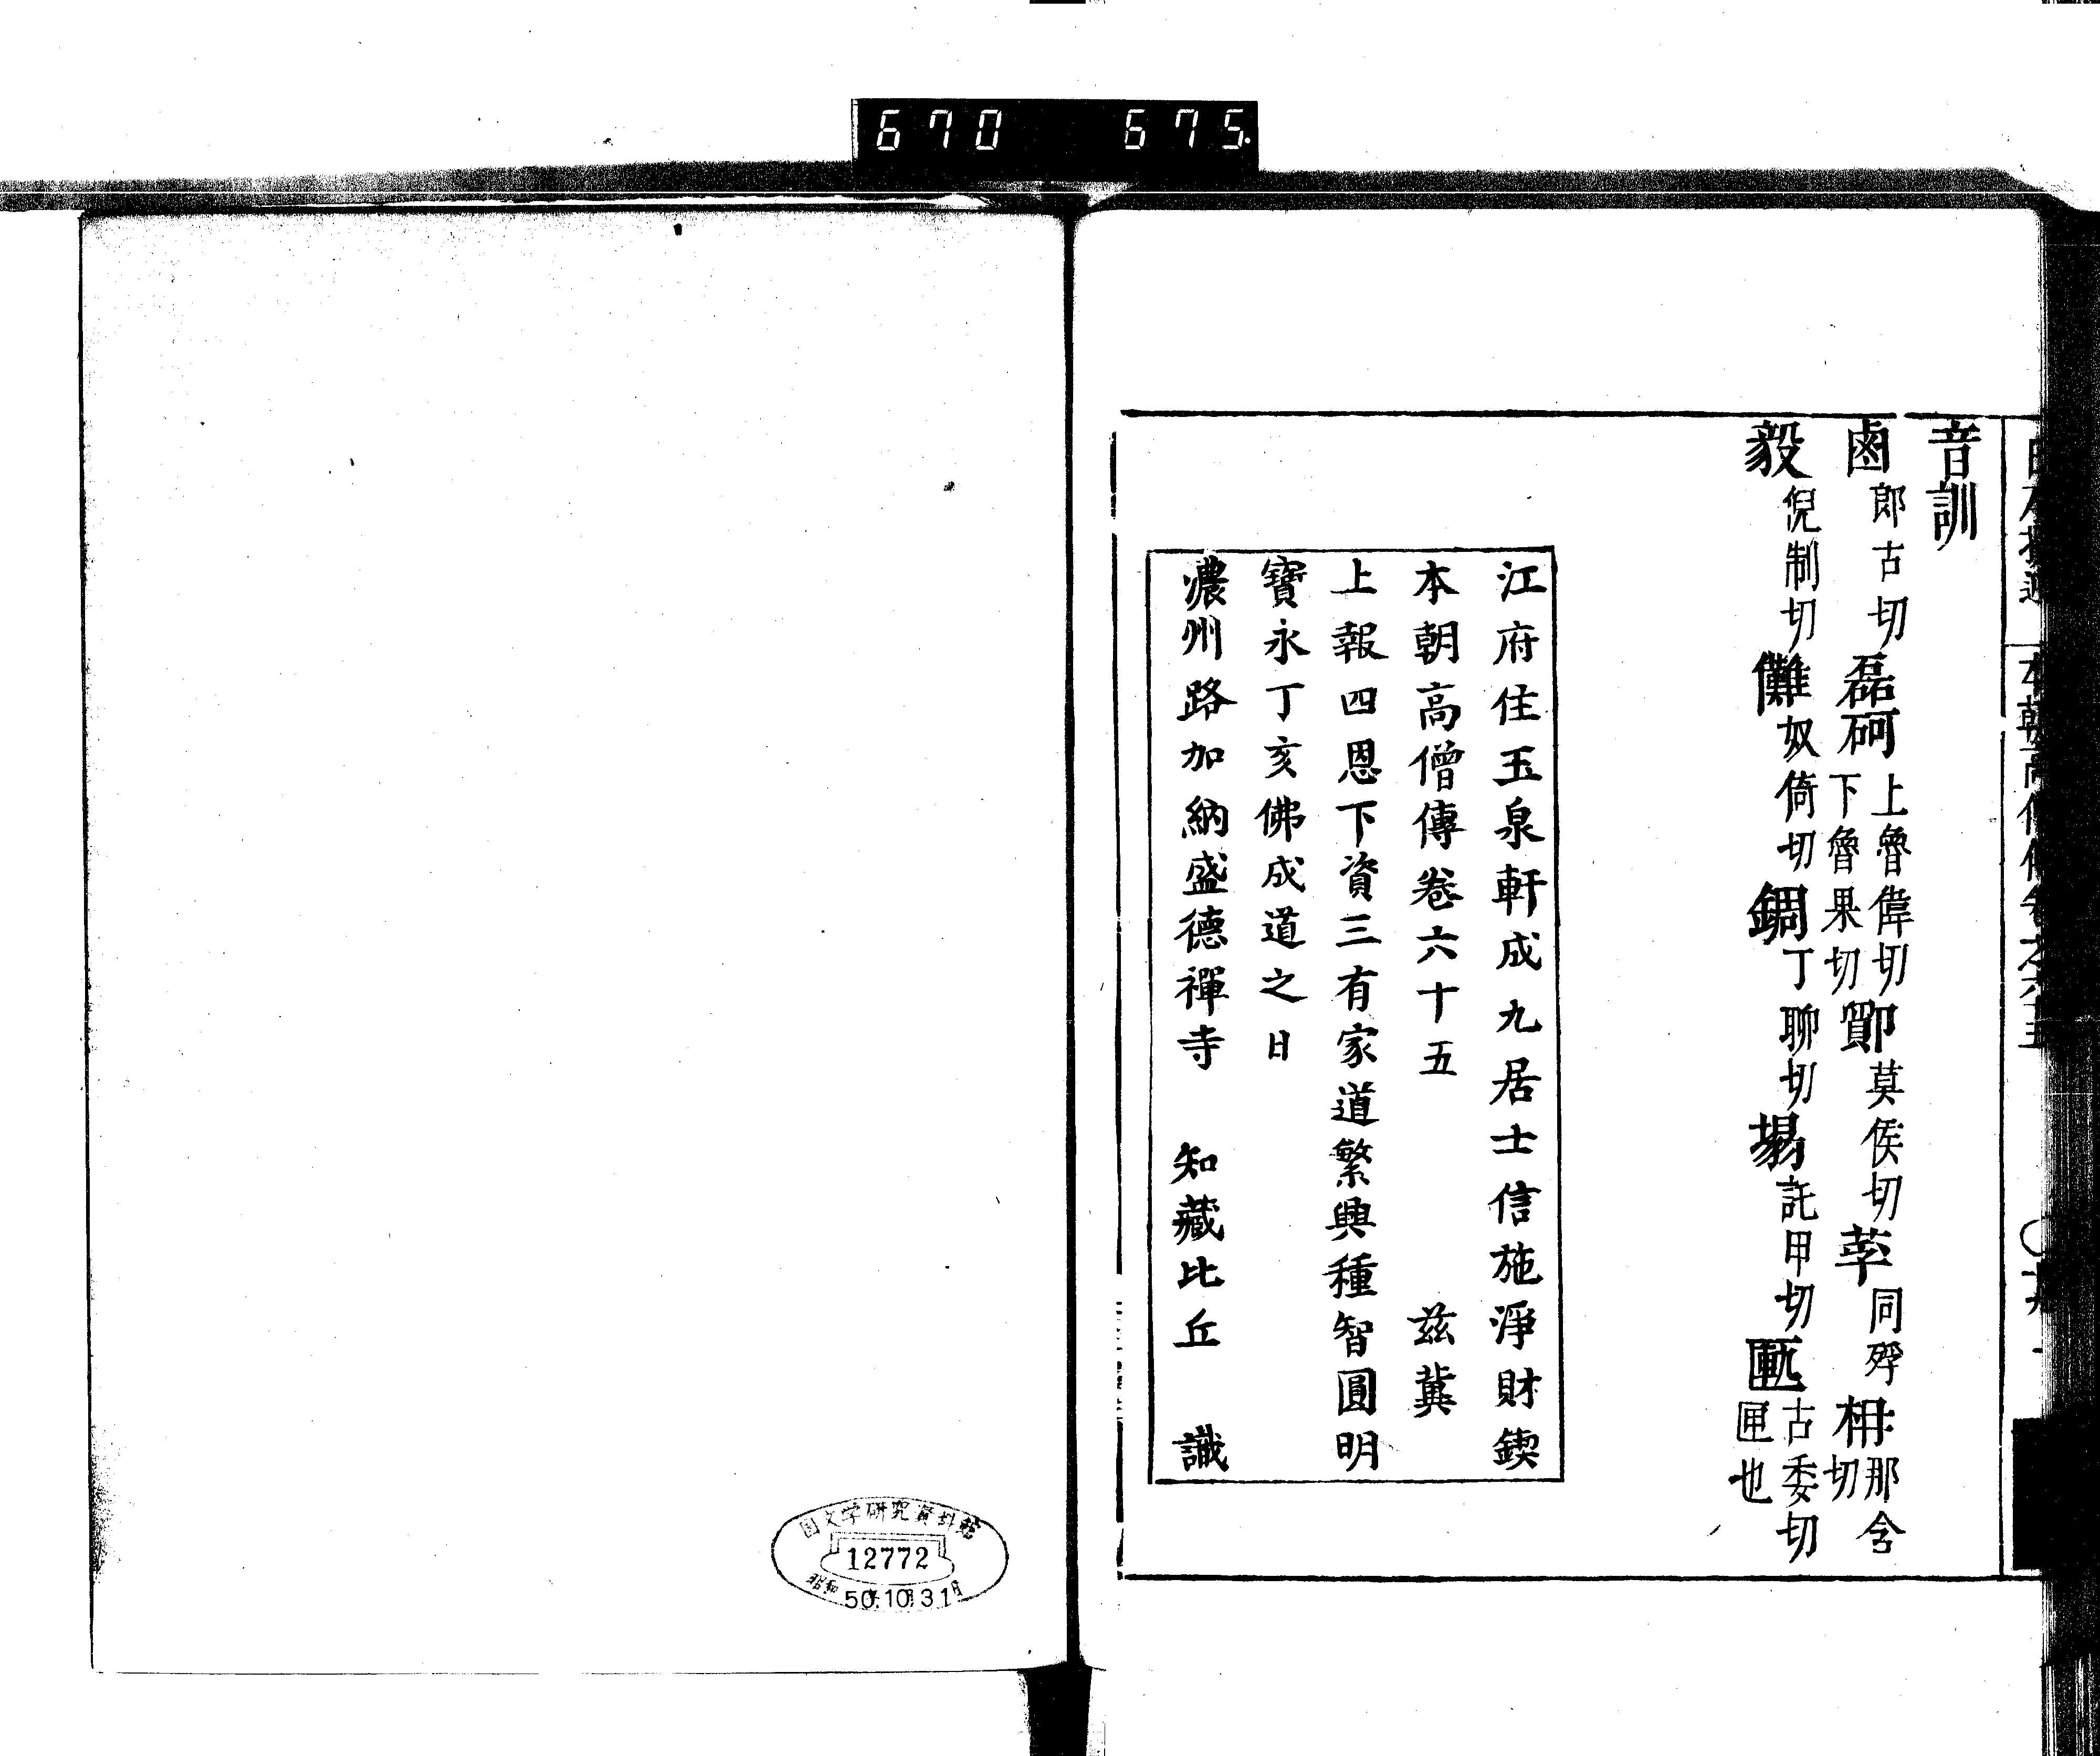 670 675.
音訓
鹵郎古切磊砢上魯偉切下魯果切貿莫侯切莩同殍枏那含切
毅倪制切儺奴倚切錭丁聊切搨託甲切匭古委切匣也
江府住玉泉軒成九居士信施淨財鍥
本朝高僧傳卷六十五 茲冀
上報四恩下資三有家道繁興種智圓明
寶永丁亥佛成道之日
濃州路加納盛德禪寺 知藏比丘 識
国文学研究資料館
12772
昭和50.10.31